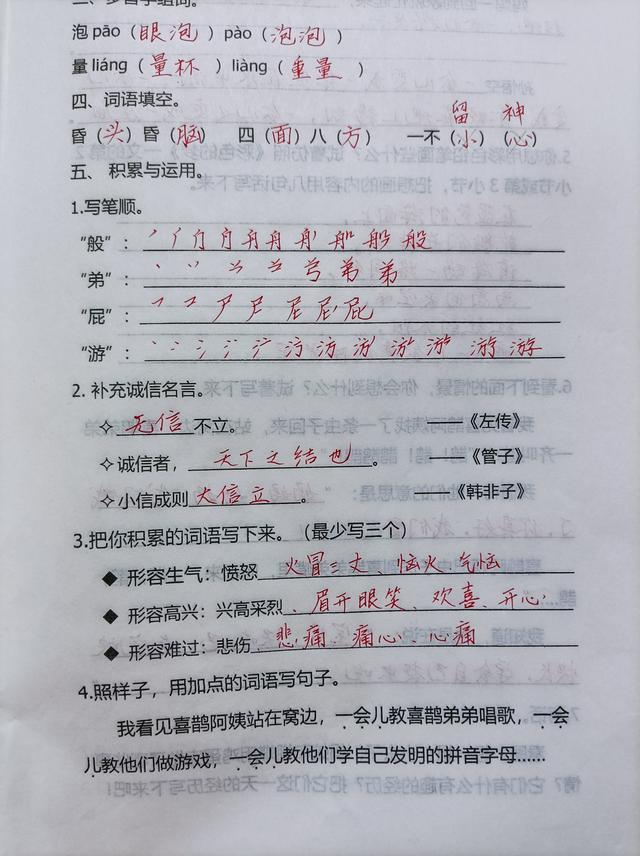 泡 pāo（眼泡）pào（泡泡）
量 liáng（量杯）liàng（重量）
四、词语填空。
留 神
昏（头）昏（脑） 四（面）八（方） 一不（小）（心）
五、积累与运用。
1.写笔顺。
“般”：
“弟”：
“屁”：
“游”：
2. 补充诚信名言。
✧ 无信不立。 ——《左传》
✧诚信者，天下之结也。 ——《管子》
✧小信成则大信立。 ——《韩非子》
3.把你积累的词语写下来。（最少写三个）
◆ 形容生气：愤怒 火冒三丈、恼火、气恼
◆ 形容高兴：兴高采烈、眉开眼笑、欢喜、开心
◆ 形容难过：悲伤 悲痛、痛心、心痛
4.照样子，用加点的词语写句子。
我看见喜鹊阿姨站在窝边，一会儿教喜鹊弟弟唱歌，一会
儿教他们做游戏，一会儿教他们学自己发明的拼音字母……